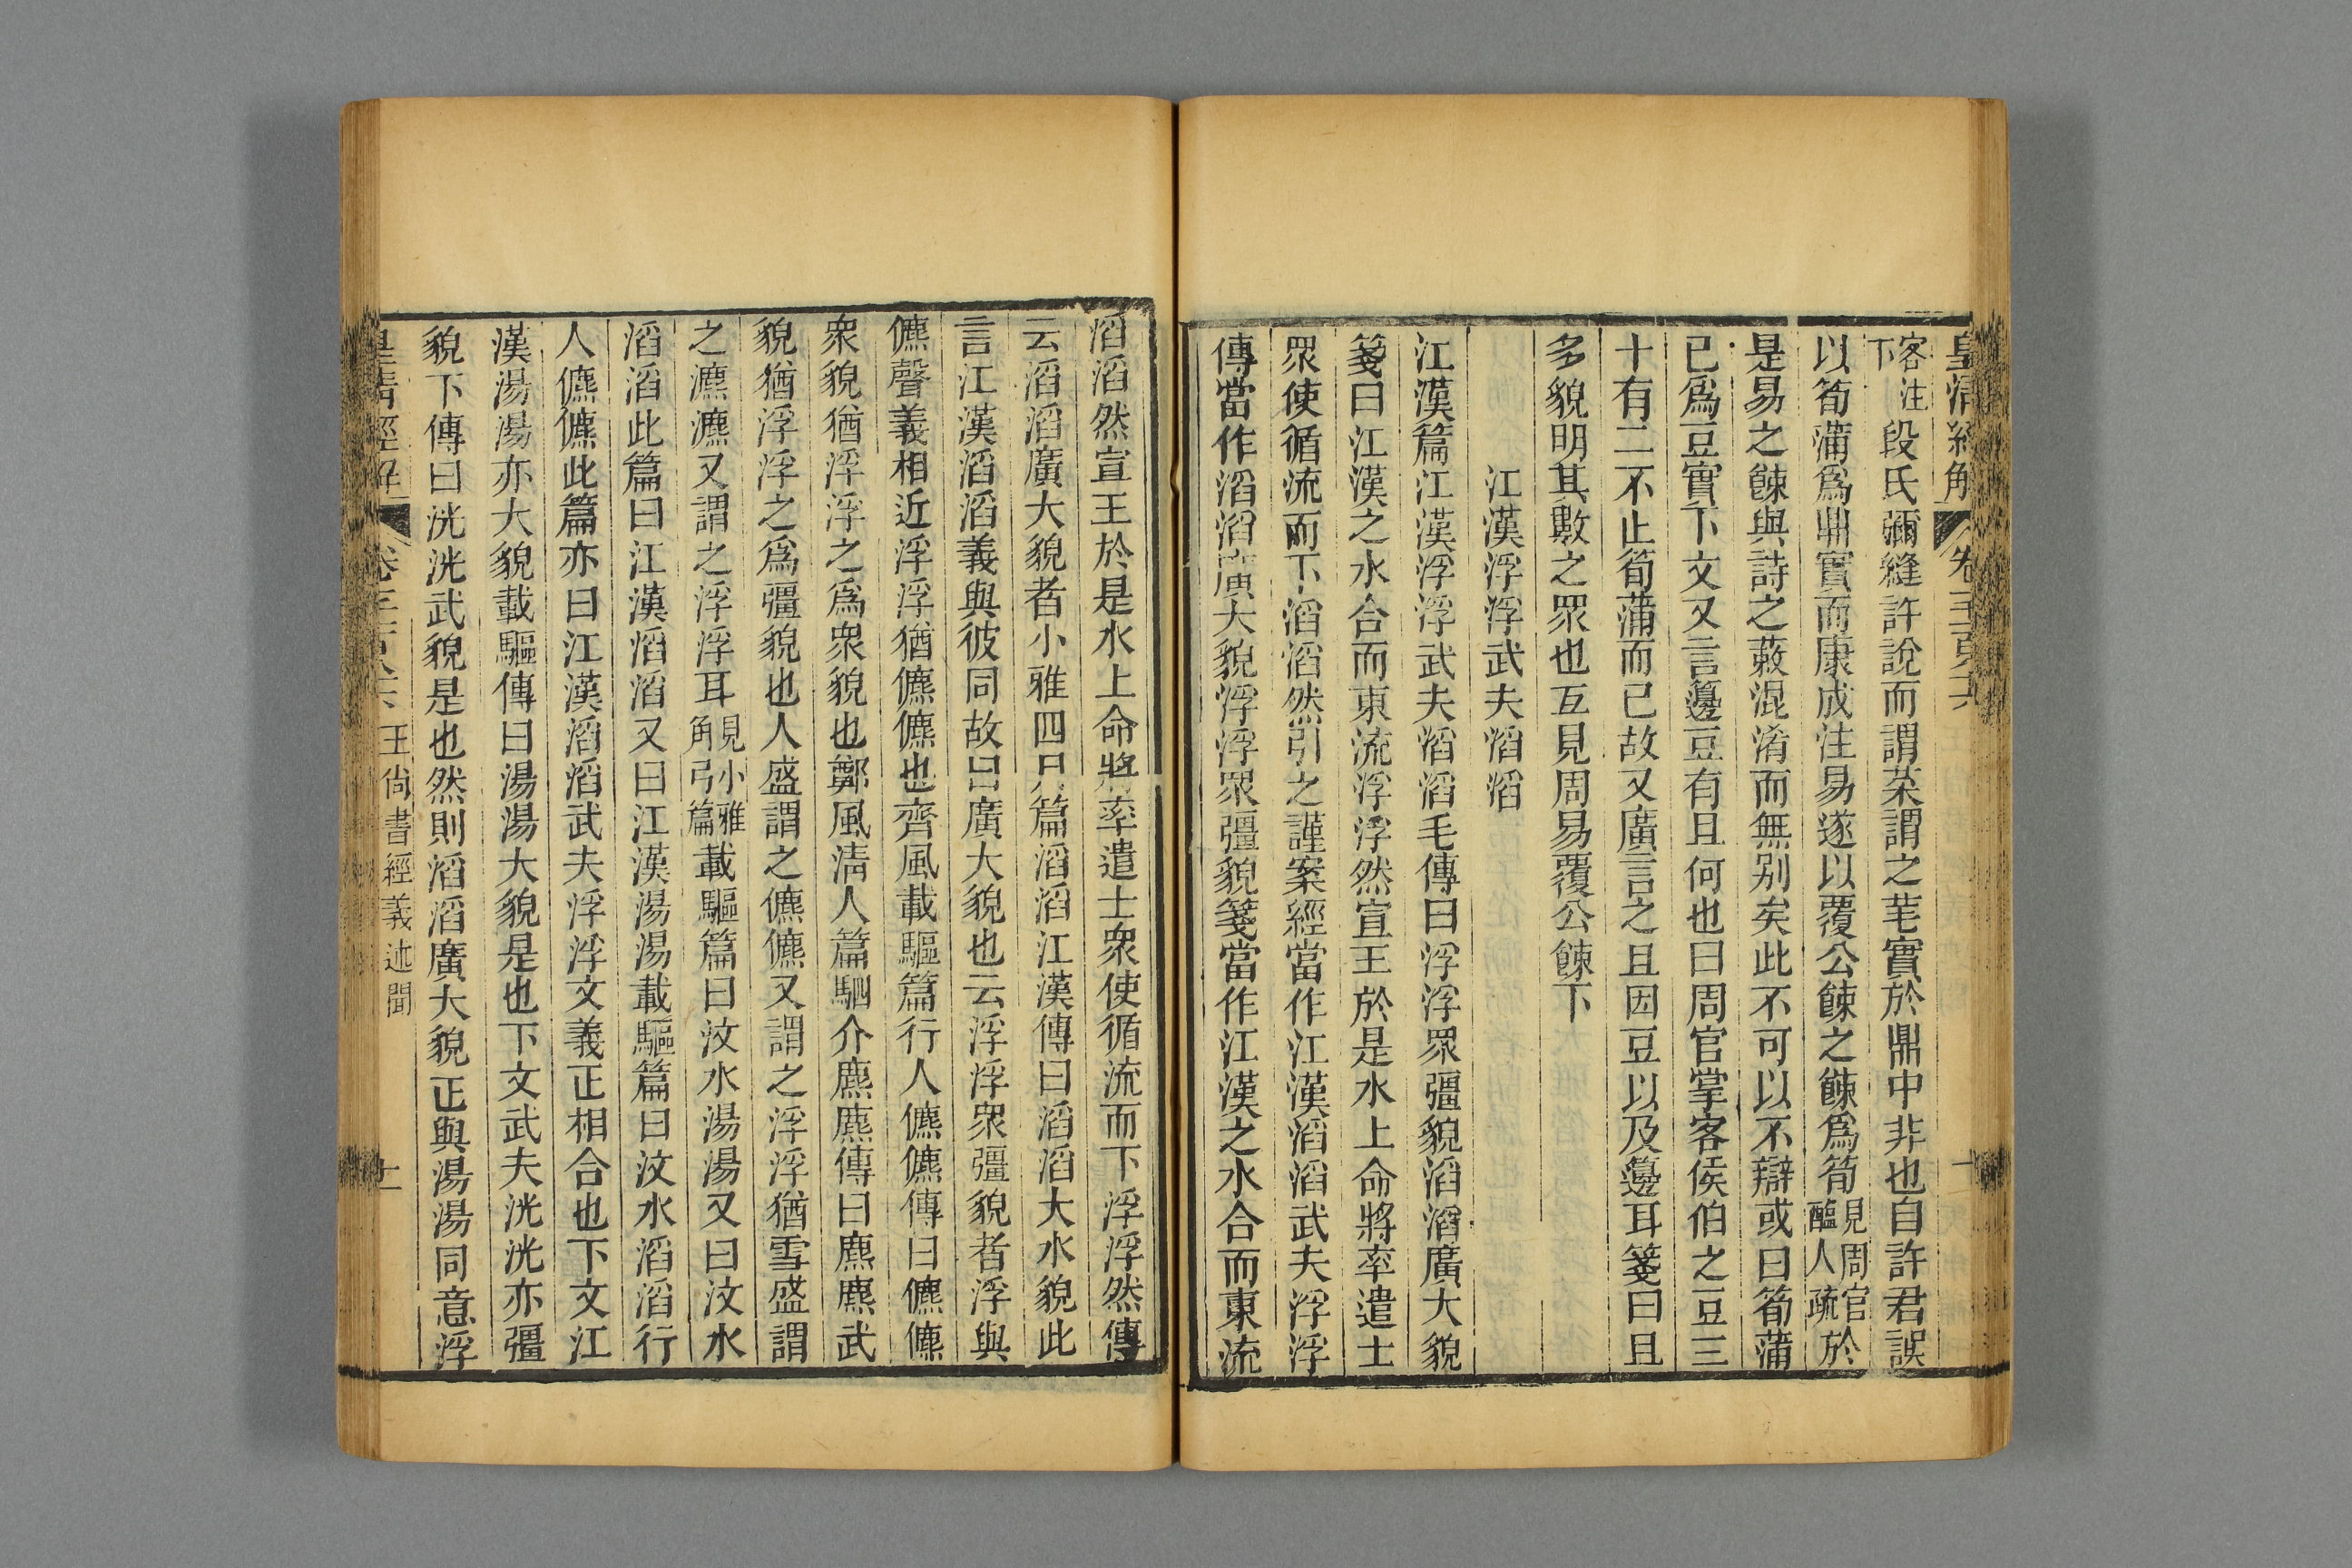 皇清經解 卷
客注
下
段氏彌縫許說而謂菜謂之芼實於鼎中非也自許君誤
以筍蒲爲鼎實而康成注易遂以覆公餗之餗爲筍見周官醢人疏於
是易之餗與詩之蔌混淆而無別矣此不可以不辯或曰筍蒲
已爲豆實下文又言籩豆有且何也曰周官掌客侯伯之豆三
十有二不止筍蒲而已故又廣言之且因豆以及籩耳箋曰且
多貌明其數之眾也互見周易覆公餗下
江漢浮浮武夫滔滔
江漢篇江漢浮浮武夫滔滔毛傳曰浮浮眾彊貌滔滔廣大貌
箋曰江漢之水合而東流浮浮然宣王於是水上命將率遣士
眾使循流而下滔滔然引之謹案經當作江漢滔滔武夫浮浮
傳當作滔滔廣大貌浮浮眾彊貌箋當作江漢之水合而東流
滔滔然宣王於是水上命將率遣士衆使循流而下浮浮然傳
云滔滔廣大貌者小雅四月篇滔滔江漢傳曰滔滔大水貌此
言江漢滔滔義與彼同故曰廣大貌也云浮浮衆彊貌者浮與
儦聲義相近浮浮猶儦儦也齊風載驅篇行人儦儦傳曰儦儦
衆貌猶浮浮之爲衆貌也鄭風清人篇駟介麃麃傳曰麃麃武
貌猶浮浮之爲彊貌也人盛謂之儦儦又謂之浮浮猶雪盛謂
之瀌瀌又謂之浮浮耳見小雅角弓篇載驅篇曰汶水湯湯又曰汶水
滔滔此篇曰江漢滔滔又曰江漢湯湯載驅篇曰汶水滔滔行
人儦儦此篇亦曰江漢滔滔武夫浮浮文義正相合也下文江
漢湯湯亦大貌載驅傳曰湯湯大貌是也下文武夫洸洸亦彊
貌下傳曰洸洸武貌是也然則滔滔廣大貌正與湯湯同意浮
皇清經解 卷 王尚書經義述聞